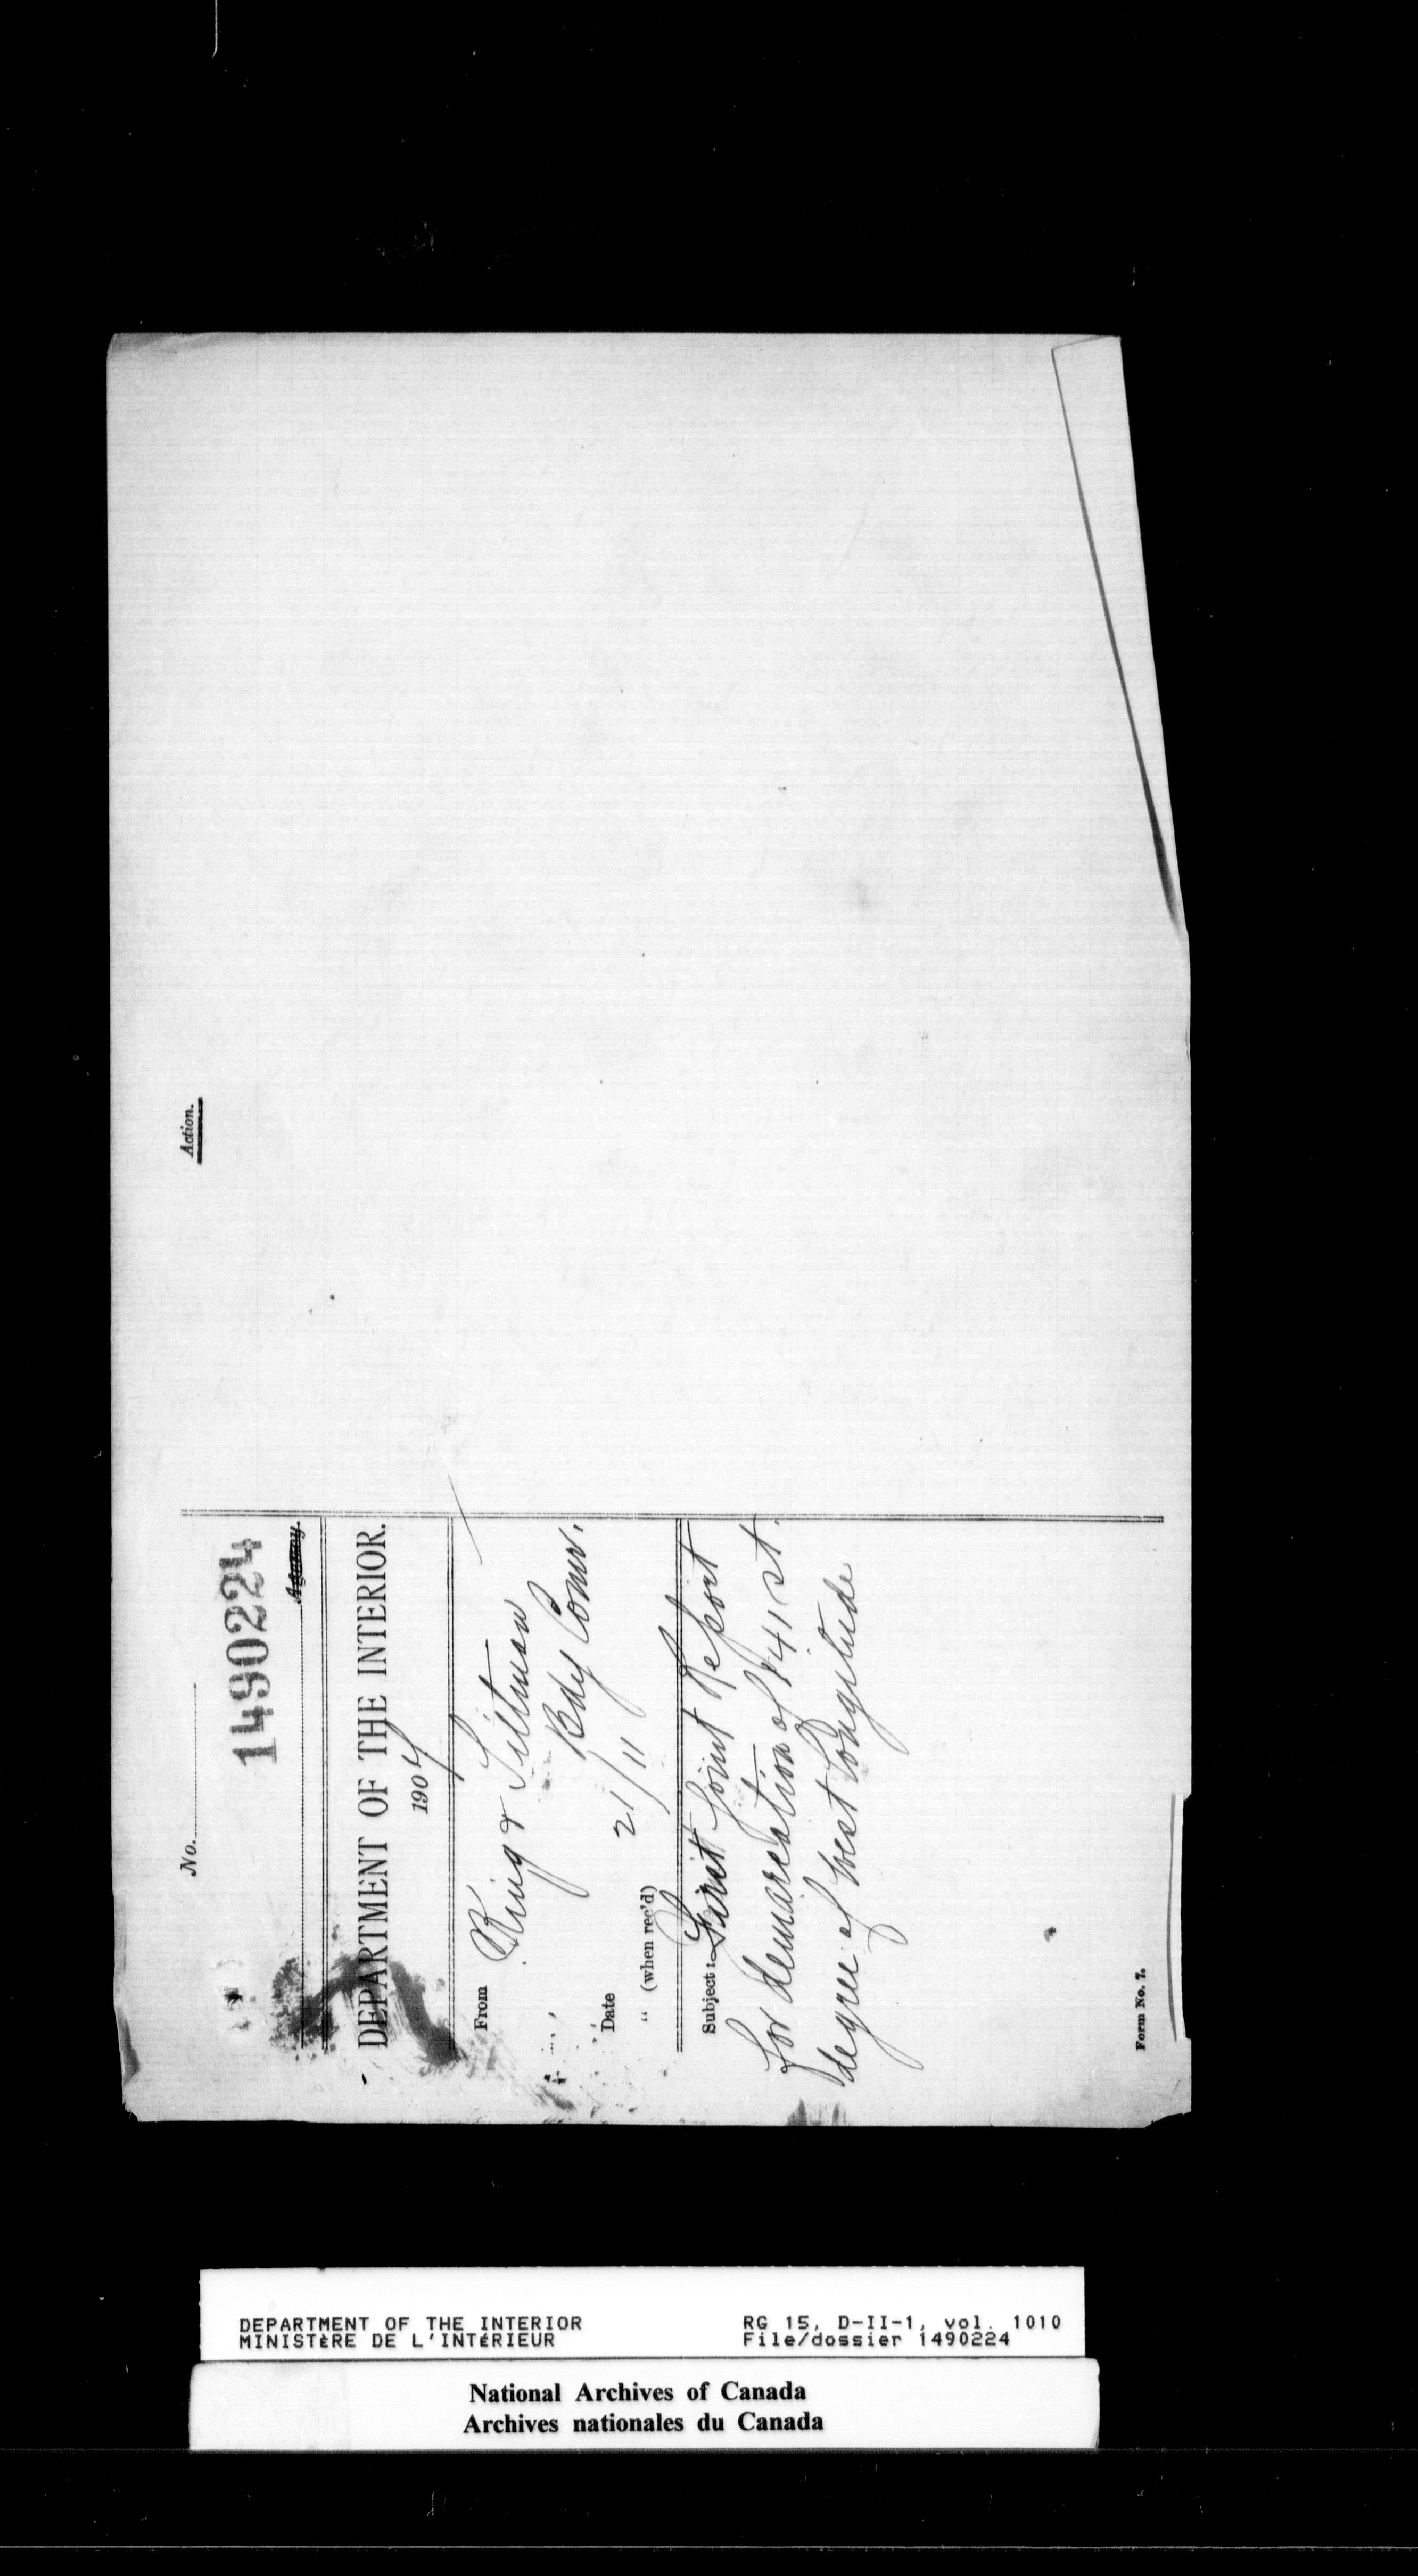 No.
1490224
Agency.
DEPARTMENT OF THE INTERIOR.
1907
From King & Tittman
Bdy Comr.
Date 21/11
" (when rec'd)
Subject: First Joint Report
for demarcation of 141st.
degree of West Longitude
Form No. 7.
Action.
DEPARTMENT OF THE INTERIOR
MINISTÈRE DE L'INTÉRIEUR
RG 15, D-II-1, vol. 1010
File/dossier 1490224
National Archives of Canada
Archives nationales du Canada